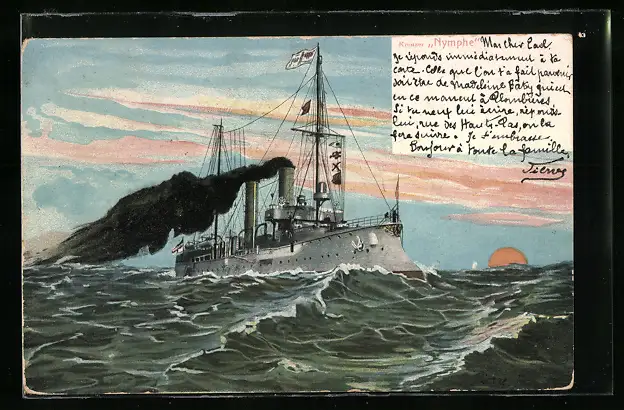 Kreuzer „Nymphe"
Mon cher Paul
je réponds immédiatement à ta
carte. Celle que l'on t'a fait parvenir
doit être de Madeleine Bâty qui est
en ce moment à Plombières.
Si tu veux lui écrire, réponds
lui, rue des Hauts-Pas, on la
fera suivre. Je t'embrasse.
Bonjour à toute la famille,